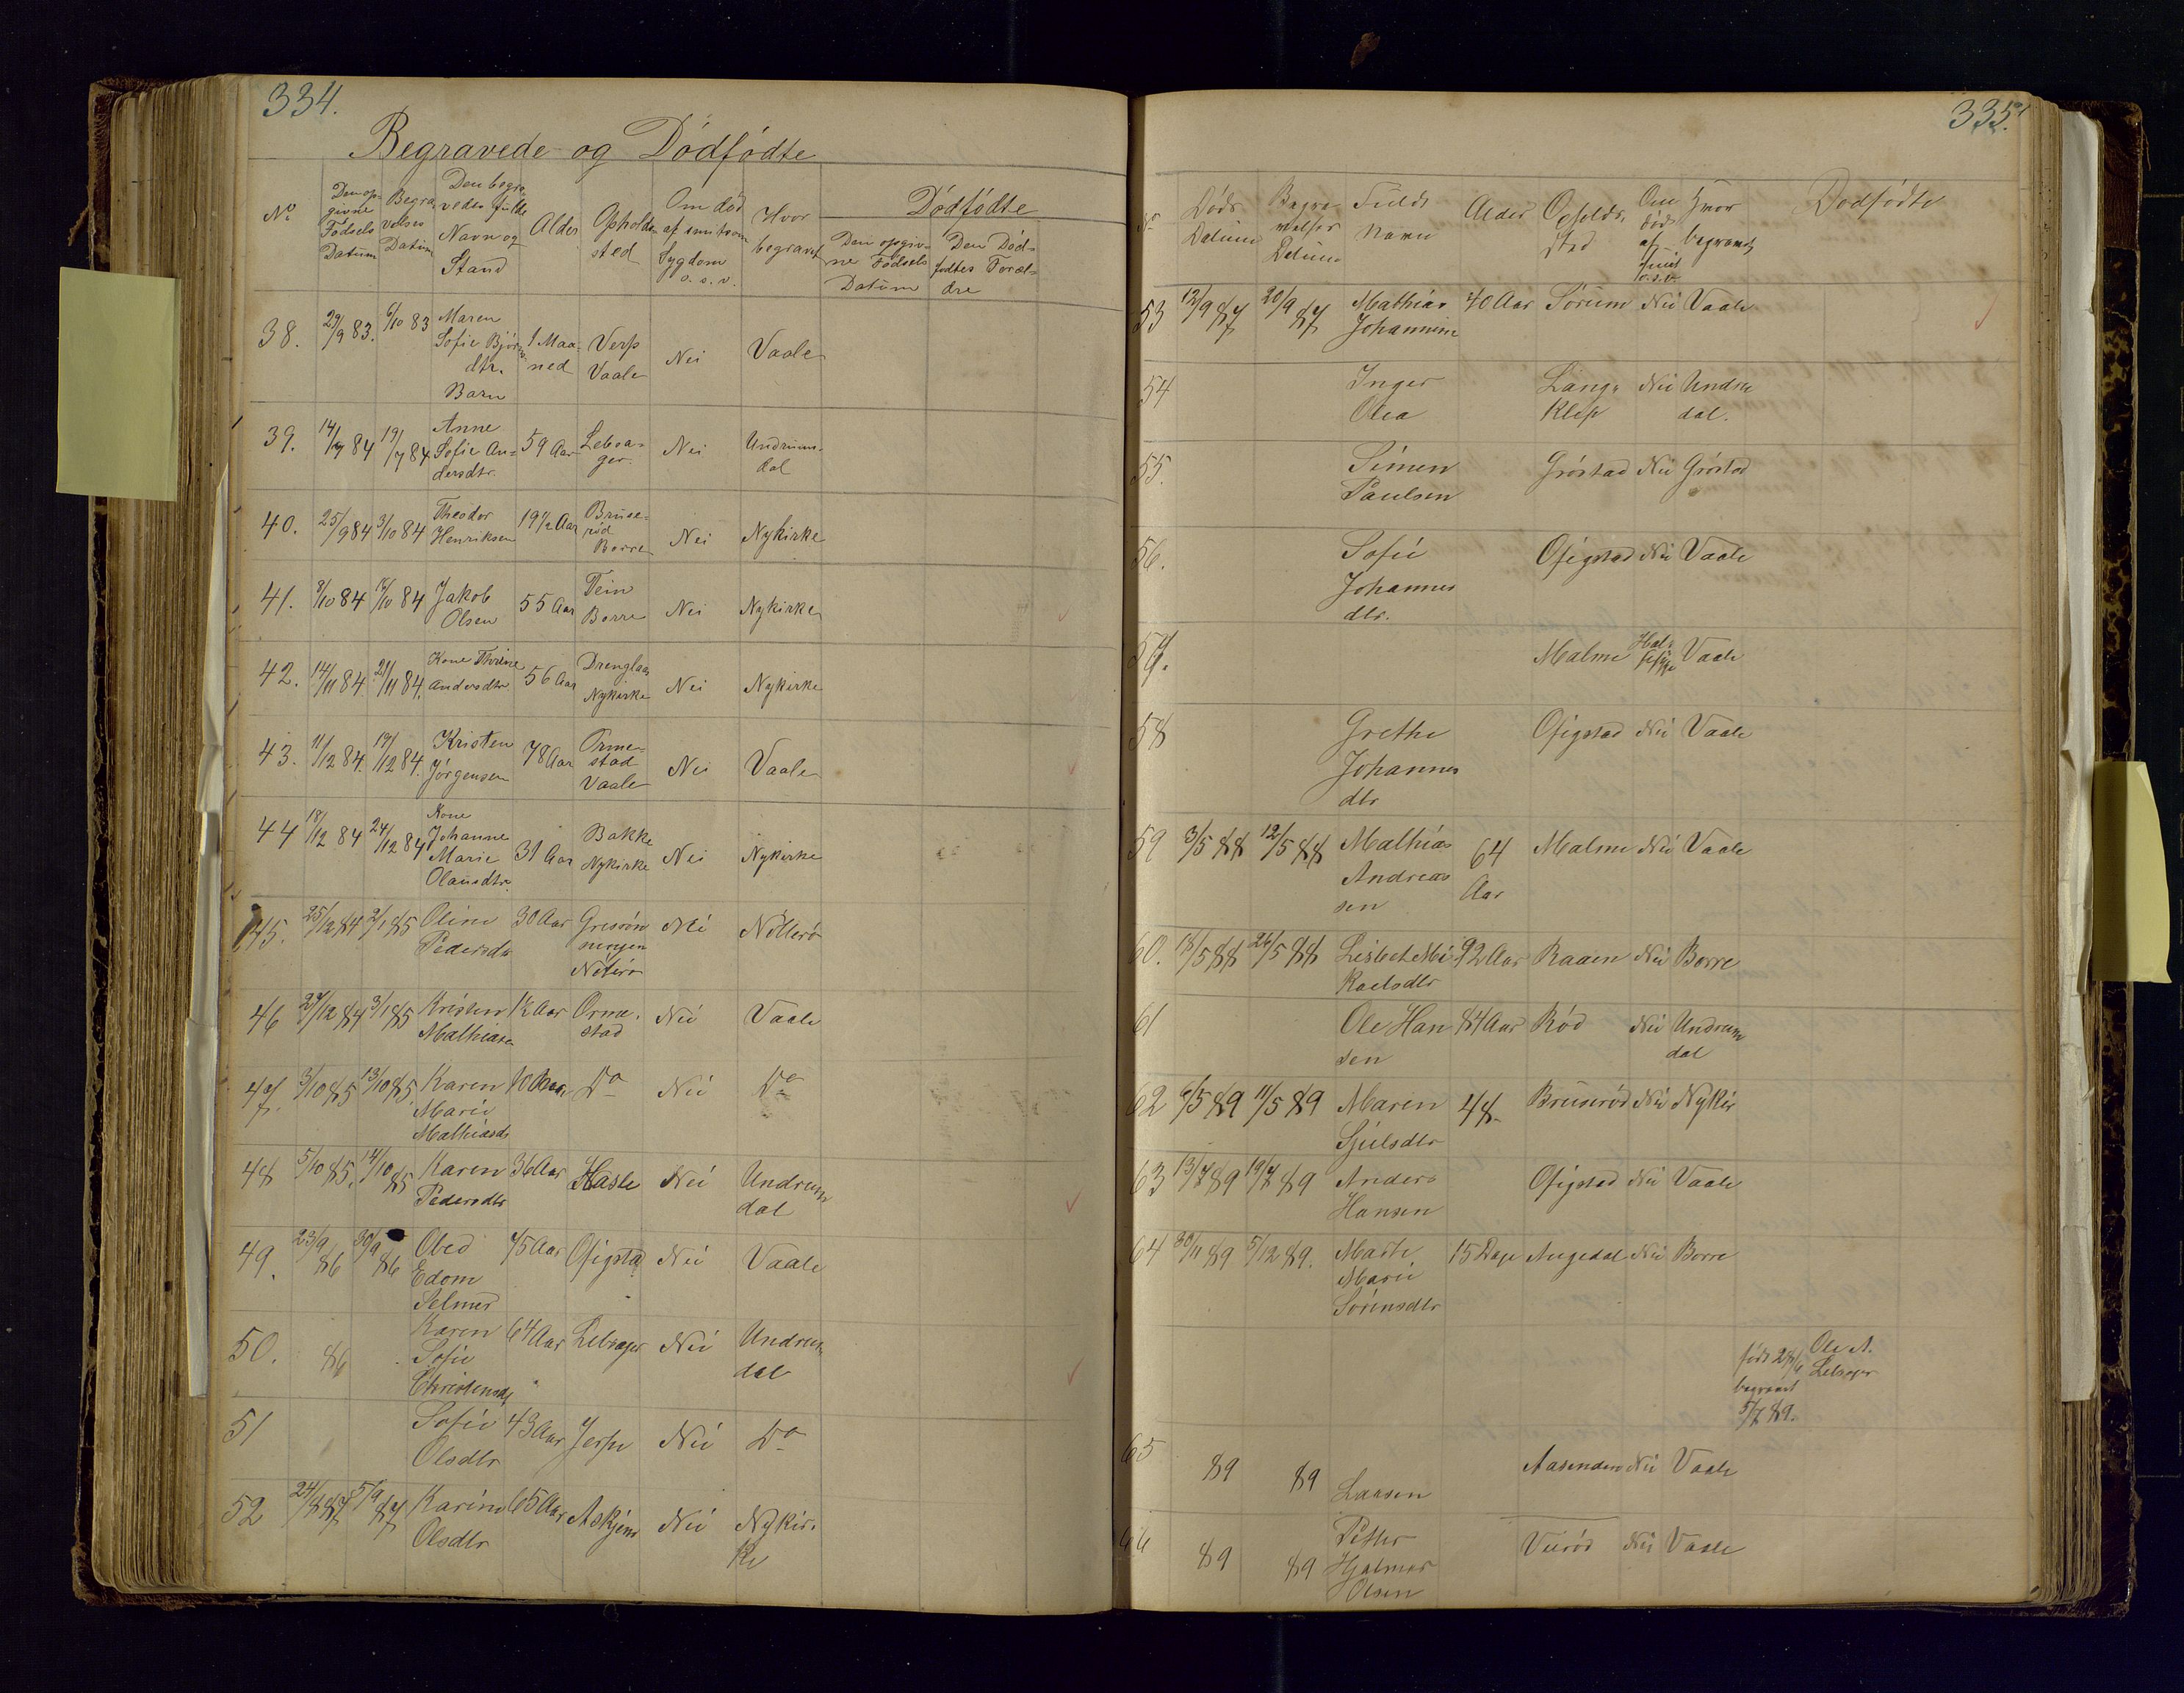 334.
Begravede og Dödfödte
No Den opgivne Födsels Datum Begravelses Datum Den begravedes fulde Navn og Stand Alder Opholdssted Om död af smitsom Sygdom o.s.v. Hvor begravet Dödfödte
Den opgivne Födsels Datum Den Dödfödtes Foræl- dre
38. 29/9 83. 6/10 83 Maren Sofie Björnsdtr. Barn 1 Maaned Verp Vaale Nei Vaale
39. 14/7 84 19/7 84 Anne Sofie Andersdtr. 59 Aar Leboager. Nei Undrumsdal
40. 25/9 84 3/10 84 Theodor Henriksen 19 1/2 Aar Bruseröd Borre Nei Nykirke
41. 8/10 84 16/10 84 Jakob Olsen 55 Aar Tein Borre Nei Nykirke
42. 14/11 84 21/11 84. Kone Thrine Andersdtr 56 Aar Drenglaas Nykirke Nei Nykirke
43. 11/12 84. 19/12 84. Kristen Jörgensen 78 Aar Ormestad Vaale Nei Vaale
44 18/12 84 24/12 84 Kone Johanne Marie Olausdtr. 31 Aar Bakke Nykirke Nei Nykirke
45. 25/12 84 2/1 85 Oline Pedersdtr 30 Aar Nei Nötterö
46 29/12 84 3/1 85 Kristen Mathiasen 1/2 Aar Ormestad Nei Vaale
47. 3/10 85 13/10 85. Karen Marie Mathiasdtr 10 Do Nei Do
48 5/10 85. 14/10 85 Karen Pedersdtr 36 Aar Hasle Nei Undrumsdal
49. 23/9 86 30/9 86 Obed Edom Selmer 75 Aar Ofigstad Nei Vaale
50. 86 Karen Sofie Christensdtr 64 Aar Leboager Nei Undrumsdal
51 Sofie Olsdtr 43 Aar Jerpe Nei Do
52 24/8 87 5/9 87 Karine Olsdtr 65 Aar Askjem Nei Nykirke
335.
No Döds Datum Begravelses Datum Fulde Navn Alder Opholdssted Om död af smit o.s.v. Hvor begravet Dödfödte
53 12/9 87 20/9 87 Mathias Johannine 40 Aar Sörum Nei Vaale
54 Inger Olea Langklep Nei Undrumdal.
55. Simen Paulsen Gröstad Nei Gröstad
56. Sofie Johannesdtr. Ofigstad Nei Vaale
57. Malme Halssyge Vaale
58 Grethe Johannesdtr Ofigstad Nei Vaale
59 3/5 88 12/5 88 Mathias Andreassen 64 Aar Malme Nei Vaale
60. 18/5 88 26/5 88 Lisbet Mikaelsdtr 92 Aar Raaen Nei Borre
61 Ole Hansen 84 Aar Röd Nei Undrumdal
62 6/5 89 11/5 89 Maren Sjulsdtr 48 Bruseröd Nei Nykir
63 13/7 89 19/7 89 Anders Hansen Ofigstad Nei Vaale
64 30/11 89 5/12 89. Marte Marie Sörensdtr 15 Dage Augedal Nei Borre
födt 28/6 begravet 5/7 89. Ole A. Leboager
65 89 89 Larsen Aasenden Nei Vaale
66 89 89 Petter Hjalmar Olsen Veiröd Nei Vaale